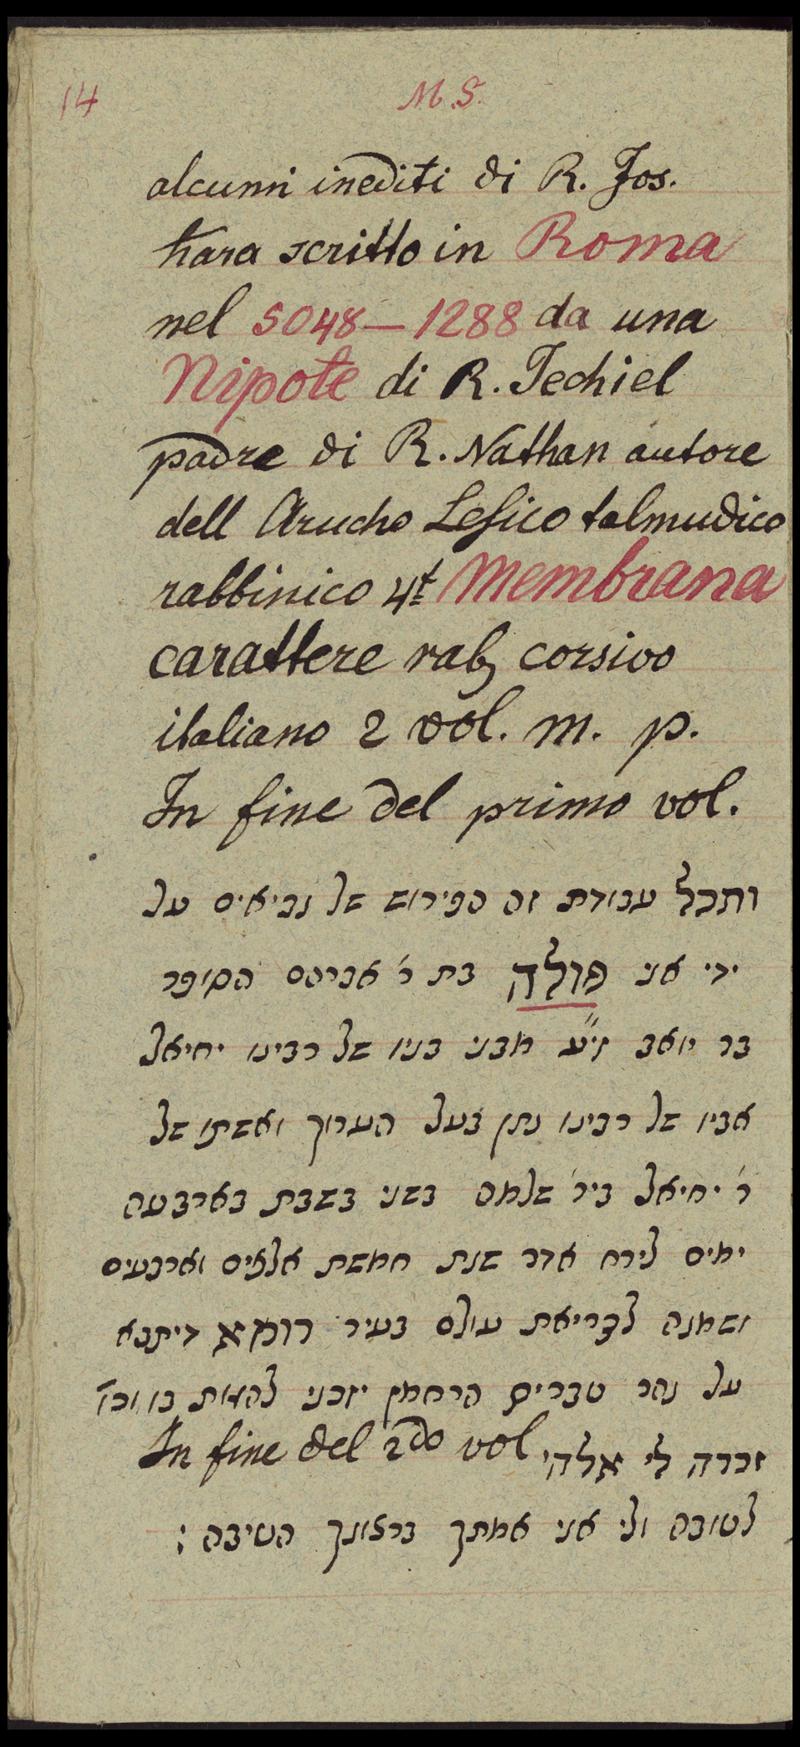 14 M. S.
alcunni inediti di R. Jos.
Kara scritto in Roma
nel 5048 — 1288 da una
Nipote di R. Jechiel
padre di R. Nathan autore
dell Arucho Lesico talmudico
rabbinico 4t Membrana
carattere rab corsivo
italiano 2 vol. m. p.
In fine del primo vol.
ותכל עבודת זה הפירוש של נביאים על
ידי אני פולה בת ר׳ אברהם הסופר
בר יואב זי״ע מבני בניו של רבינו יחיאל
אביו של רבינו נתן בעל הערוך ואשתו של
ר׳ יחיאל ביר׳ שלמה בשני בשבת בארבעה
ימים לירח אדר שנת חמשת אלפים וארבעים
ושמנה לבריאת עולם בעיר רומא דיתבא
על נהר טברים הרחמן יזכני להגות בו וכו׳
In fine del 2do vol זכרה לי אלהי
לטובה ולי אני אמתך ברצונך הטיבה :